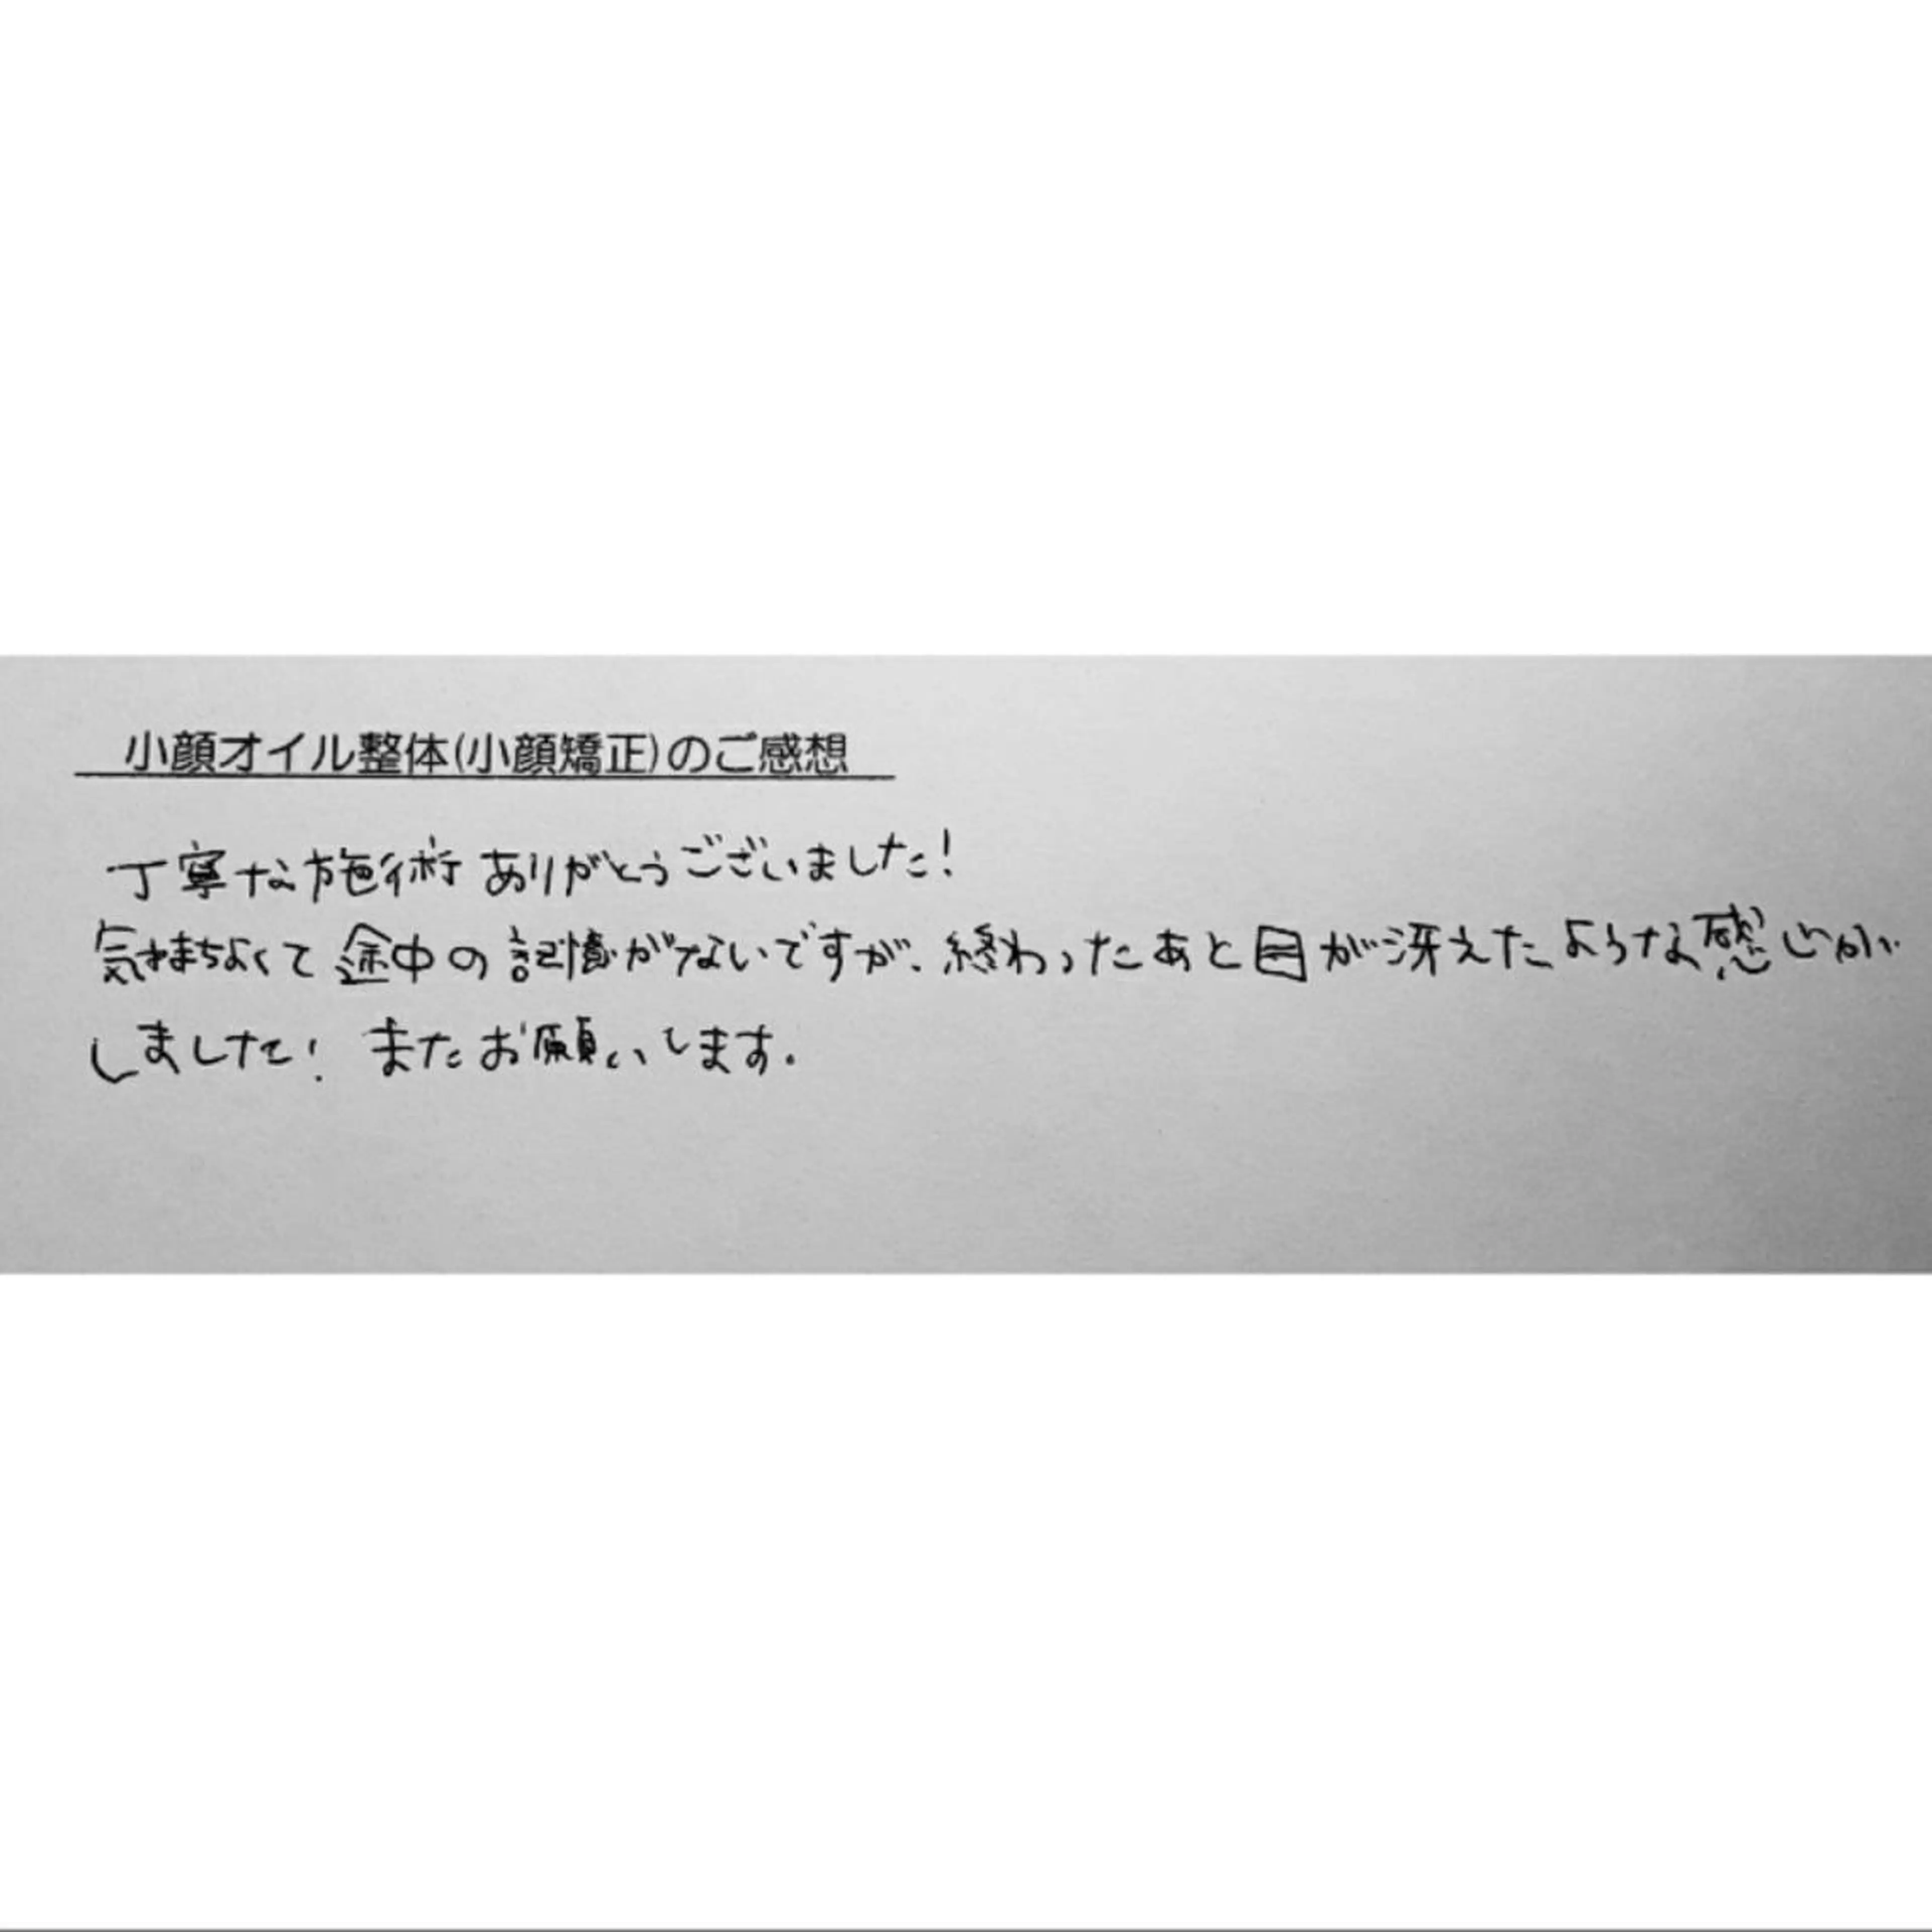 小顔オイル整体(小顔矯正)のご感想
丁寧な施術ありがとうございました!
気持ちよくて途中の記憶がないですが、終わったあと目が冴えたような感じが
しました! またお願いします。